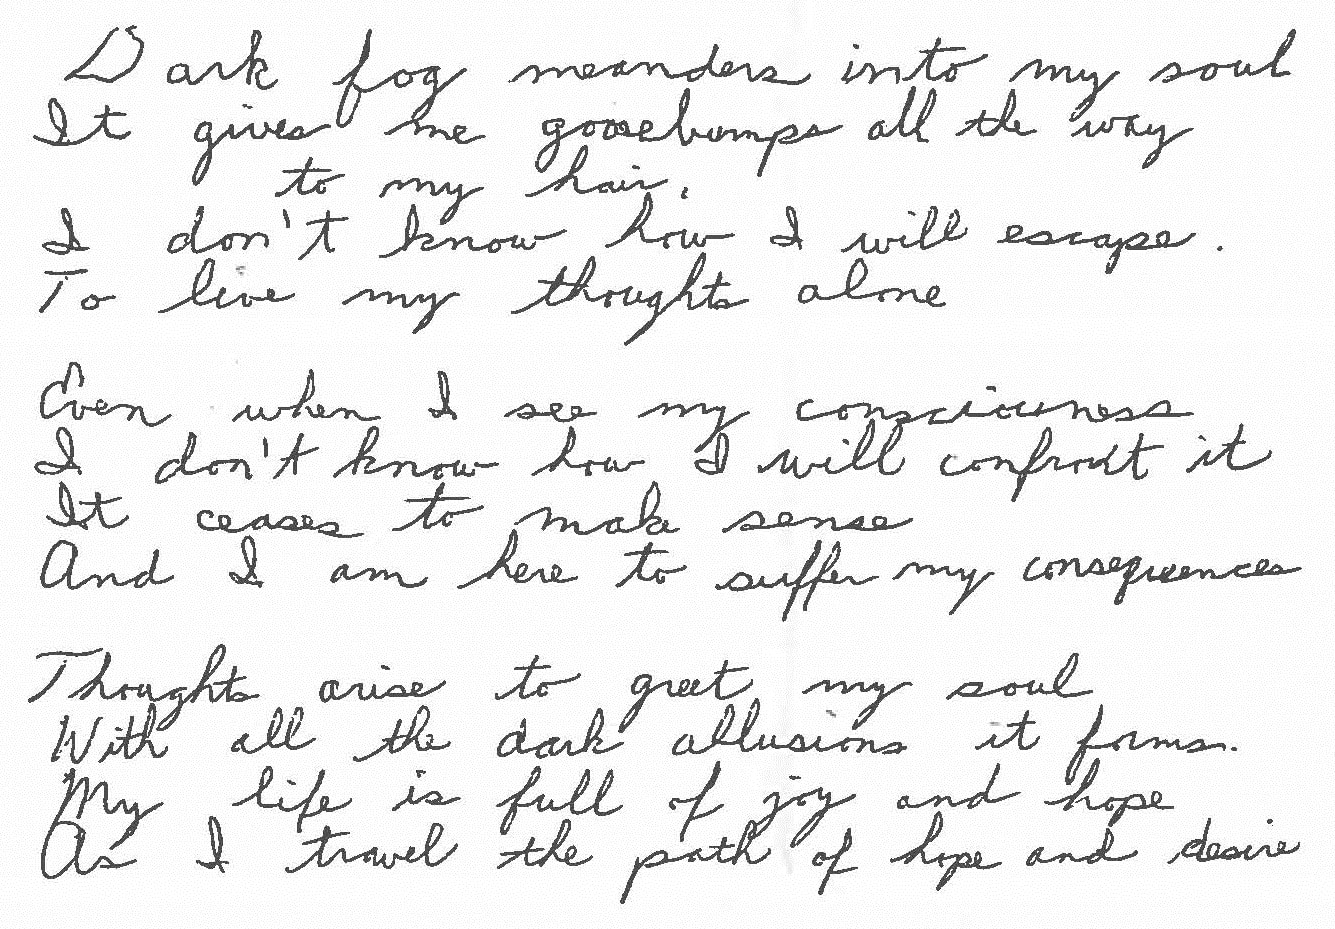 Dark fog meanders into my soul
It gives me goosebumps all the way
to my hair.
I don't know how I will escape.
To live my thoughts alone
Even when I see my consciousness
I don't know how I will confront it
It ceases to make sense
And I am here to suffer my consequences
Thoughts arise to greet my soul
With all the dark allusions it forms.
My life is full of joy and hope
As I travel the path of hope and desire